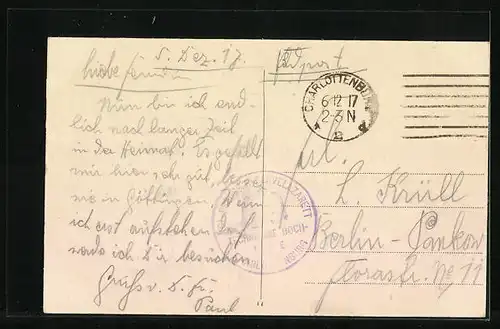 5. Dez. 17.
Liebe
Nun bin ich end-
lich nach langer Zeit
in der Heimat. Es gefällt
mir hier sehr gut, besser
wie in Göttingen. Wenn
ich erst aufstehen darf
werde ich Dir besuchen
Gruss v. D. Fr.
Paul
Feldpost
CHARLOTTENBURG
6.12.17
2-3N
LAZARETT
HOCH-
E
NBURG
L. Krüll
Berlin-Pankow
Florastr. No 11